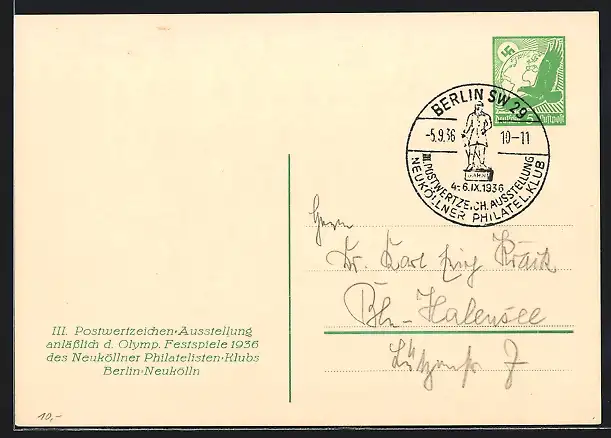 Deutsche Luftpost
BERLIN SW 29
-5.9.36
10-11
JAHN
4.-6.IX.1936
III. POSTWERTZEICH. AUSSTELLUNG
NEUKÖLLNER PHILATEL. KLUB
Herrn
Dr. Karl
Bln-Halensee
III. Postwertzeichen-Ausstellung
anläßlich d. Olymp. Festspiele 1936
des Neuköllner Philatelisten-Klubs
Berlin-Neukölln
10,-